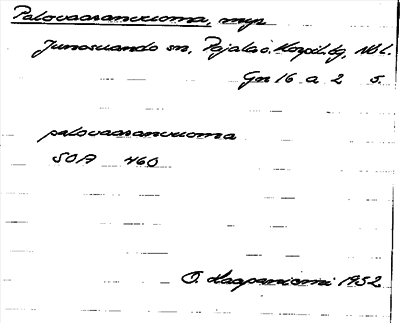 Palovaaranvuoma, myr
Junosuando sn, Pajala o. Korpil. tg, Nbl.
Gn 16 a 2 5.
palovaaranvuoma
SOA 460
O. Haapaniemi 1952